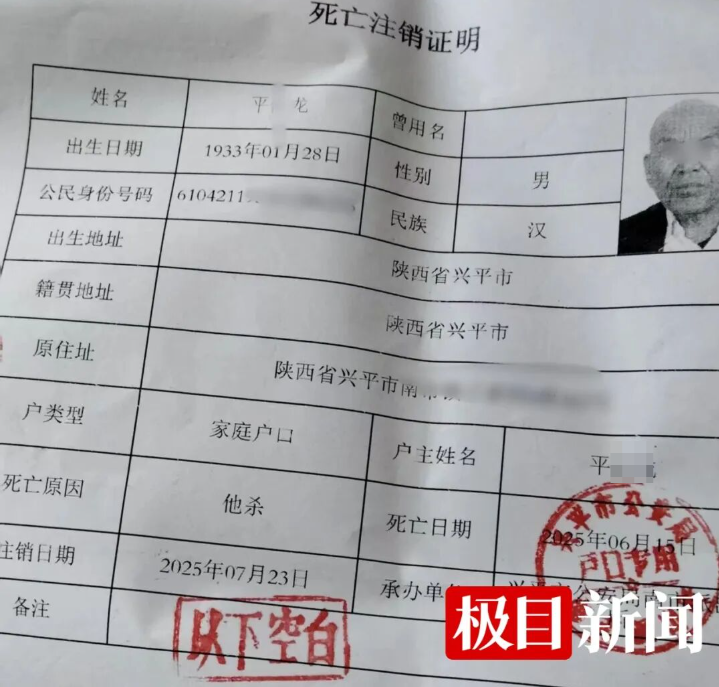 死亡注销证明
姓名 平 龙 曾用名
出生日期 1933年01月28日 性别 男
公民身份号码 6104211 民族 汉
出生地址 陕西省兴平市
籍贯地址 陕西省兴平市
原住址 陕西省兴平市南市
户类型 家庭户口 户主姓名 平 龙
死亡原因 他杀 死亡日期 2025年06月15日
注销日期 2025年07月23日 承办单
备注 以下空白
平市公安局
户口专用
极目新闻